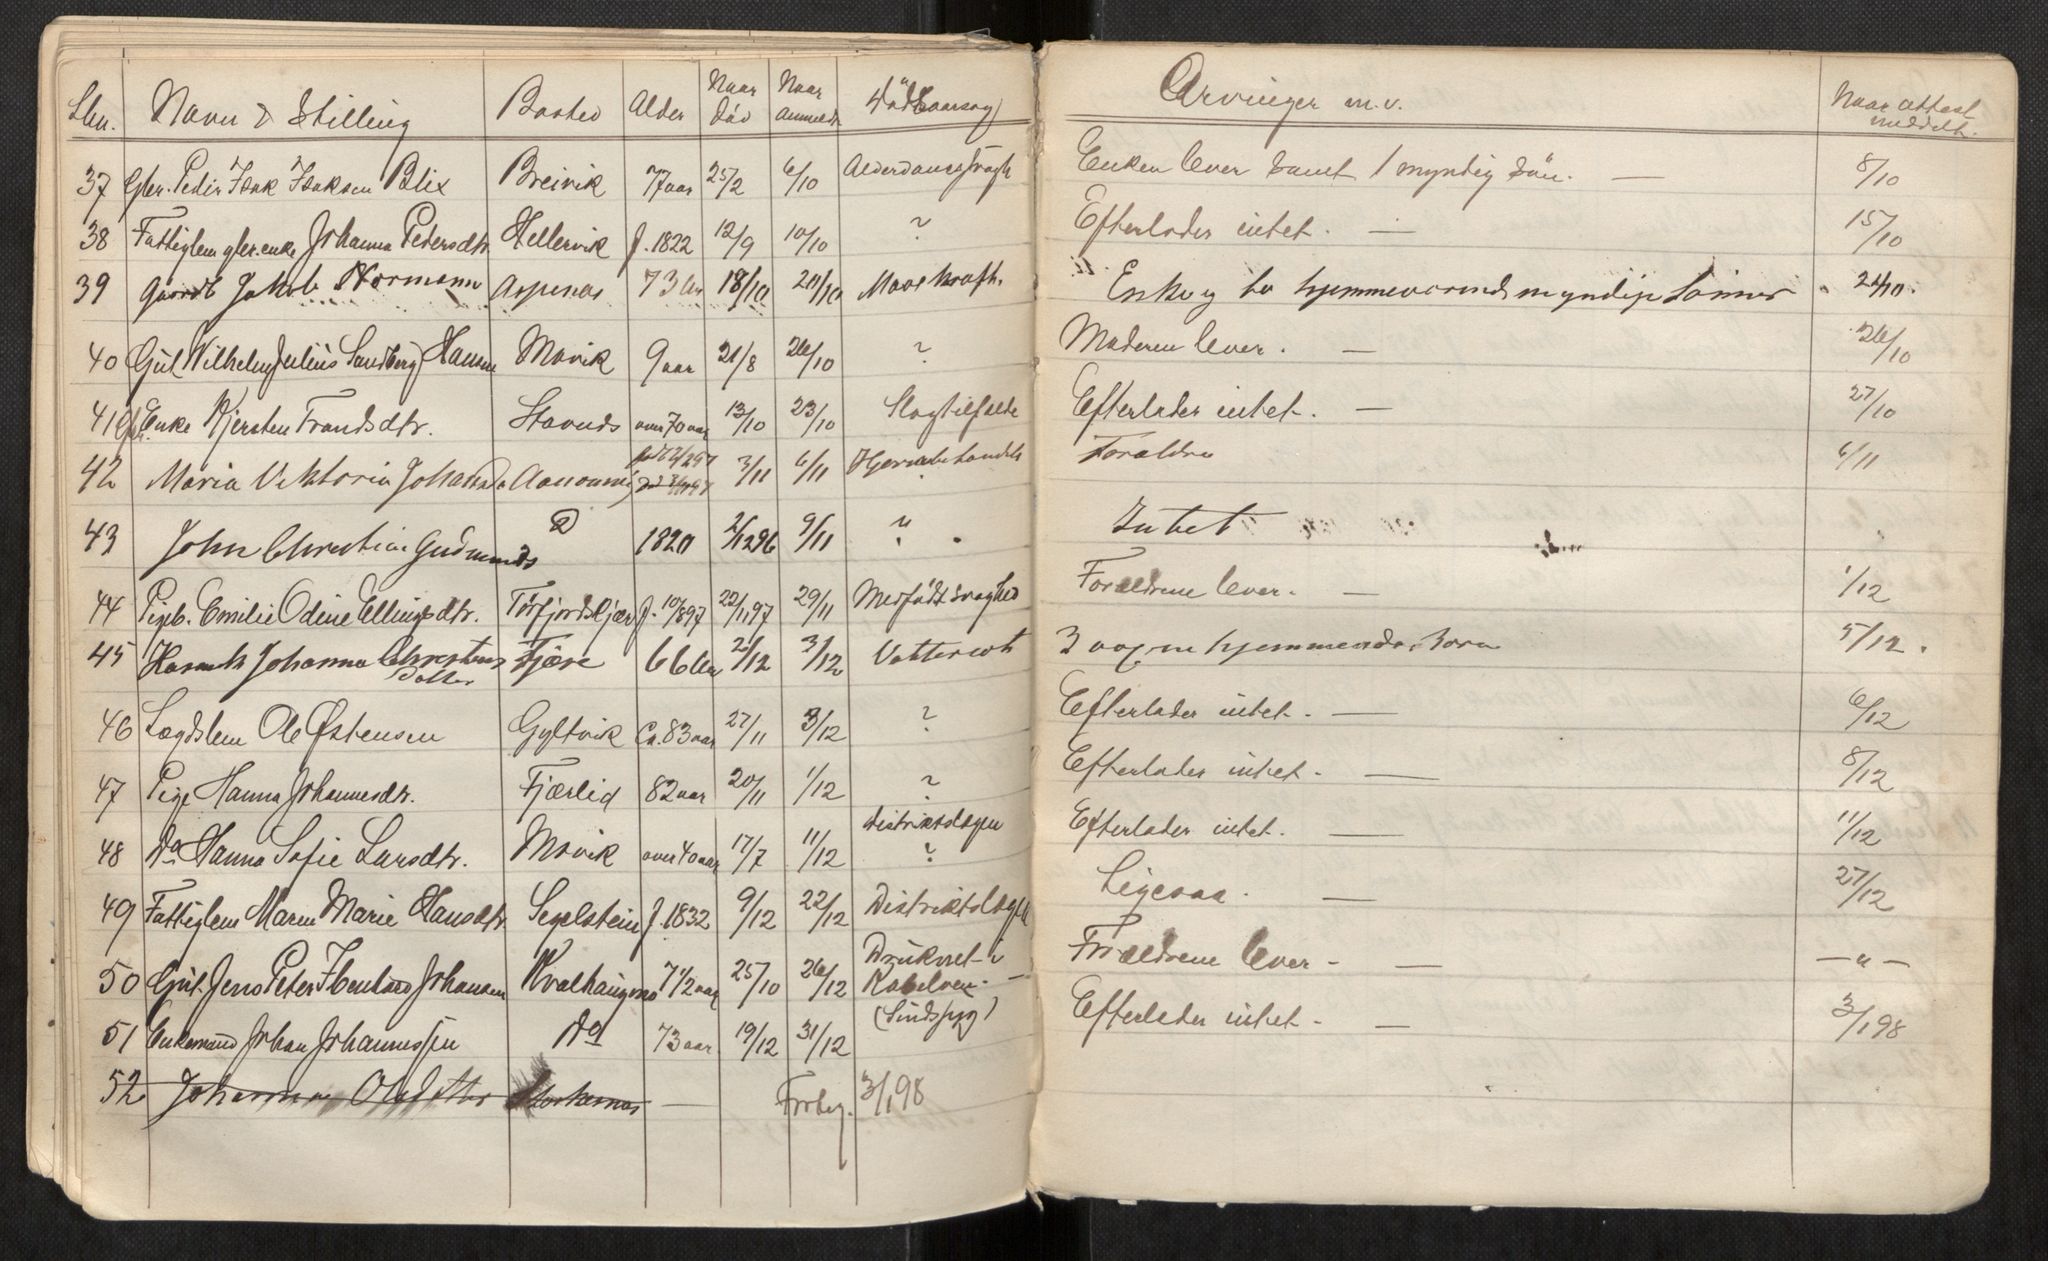 Lbn. Navn & Stilling Bosted Alder Naar död Naar anmeldt Dödsaarsag Arvinger m.v. Naar attest meddelt.
37 Gbr. Peder Isak Isaksen Blix Breivik 77 aar 25/2 6/10 Alderdomssvagh Enken lever samt 1 myndig sön. — 8/10
38 Fattiglem gbr.enke Johanna Pedersdtr. Hellervik f. 1822 12/9 10/10 ? Efterlader intet. — 15/10
39 Gaardb Jakob Normann Aspenes 73 20/10 Mavekræft. Enke og to hjemmeværende myndige sönner 24/10.
40 Gut Wilhelm Julius Sandberg Hansen Movik 9 aar 21/8 26/10 ? Moderen lever. — 26/10
41 Enke Kjersten Trondsdtr. Stavnes over 70 aar 13/10 23/10 Slagtilfælde Efterlader intet. — 27/10
42 Maria Viktoria 3/11 6/11 Forældre 6/11
43 John Christian Gudmunds 1820 2/1296 9/11 " Intet
44 Pigeb. Emilie Odine Ellingsdtr. Torfjordskjær f. 10/897 22/1197 29/11 Medfödt svaghed Forældrene lever. — 1/12
45 Johanna Christens Datter Fjære 66 3/12 Vattersot 3 hjemmeværende 5/12.
46 Lægdslem Ole Østensen Gyltvik Ca. 83 aar 27/11 3/12 ? Efterlader intet. — 6/12
47 Pige Hanna Johannesdtr. Fjærlid 82 aar 20/11 1/12 ? Efterlader intet. — 8/12
48 Do Hanna Sofie Larsdtr. Movik over 40 aar 17/7 11/12 Distriktslægen ? Efterlader intet. — 11/12
49 Fattiglem Maren Marie Hansdtr. Segelstein f. 1832 9/12 22/12 Distriktslægen Ligesaa. — 27/12
50 Gut Jens Peter Johansen 7 1/2 aar 25/10 26/12 Druknet i Kabelvaag. — Forældrene lever. — — " —
51 Enkemand Johan Johannessen Do 73 aar. 19/12 31/12 (Sindssyg) Efterlader intet. — 3/198
52 Johanna Olsdatter Storkernes — Forbig. 3/198